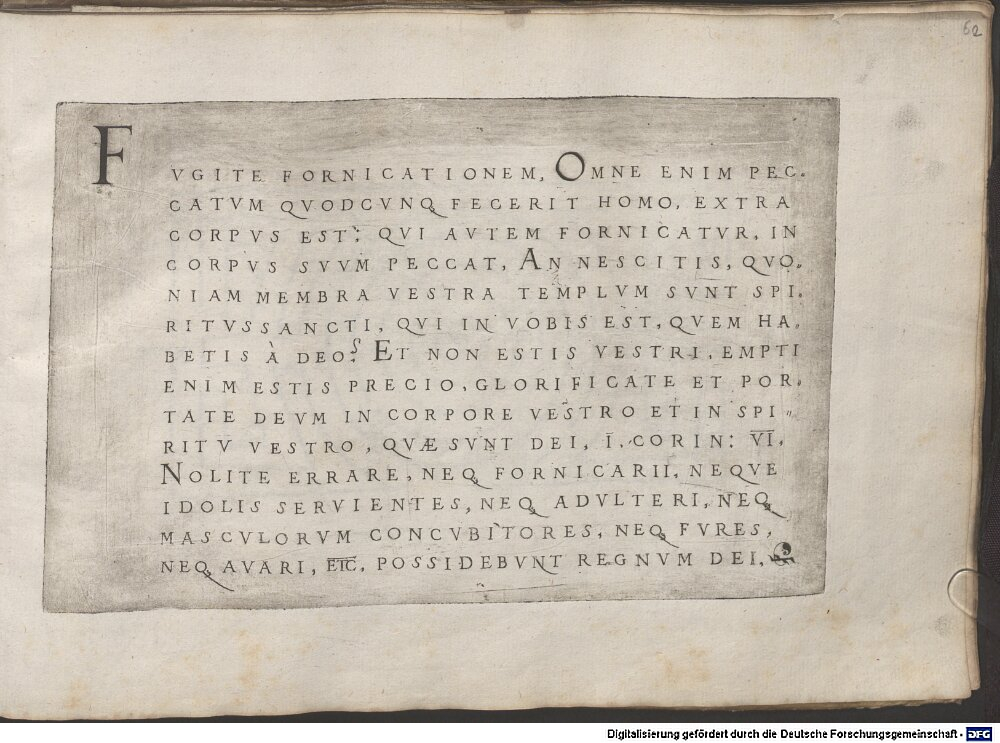 62
FVGITE FORNICATIONEM, OMNE ENIM PEC.
CATVM QVODCVNQ, FECERIT HOMO, EXTRA
CORPVS EST; QVI AVTEM FORNICATVR, IN
CORPVS SVVM PECCAT, AN NESCITIS, QVO.
NIAM MEMBRA VESTRA TEMPLVM SVNT SPI.
RITVSSANCTI, QVI IN VOBIS EST, QVEM HA.
BETIS À DEO? ET NON ESTIS VESTRI, EMPTI
ENIM ESTIS PRECIO, GLORIFICATE ET POR.
TATE DEVM IN CORPORE VESTRO ET IN SPI„
RITV VESTRO, QVÆ SVNT DEI, I, CORIN: VI,
NOLITE ERRARE, NEQ, FORNICARII, NEQVE
IDOLIS SERVIENTES, NEQ, ADVLTERI, NEQ,
MASCVLORVM CONCVBITORES, NEQ, FVRES,
NEQ, AVARI, ETC, POSSIDEBVNT REGNVM DEI,
Digitalisierung gefördert durch die Deutsche Forschungsgemeinschaft - DFG